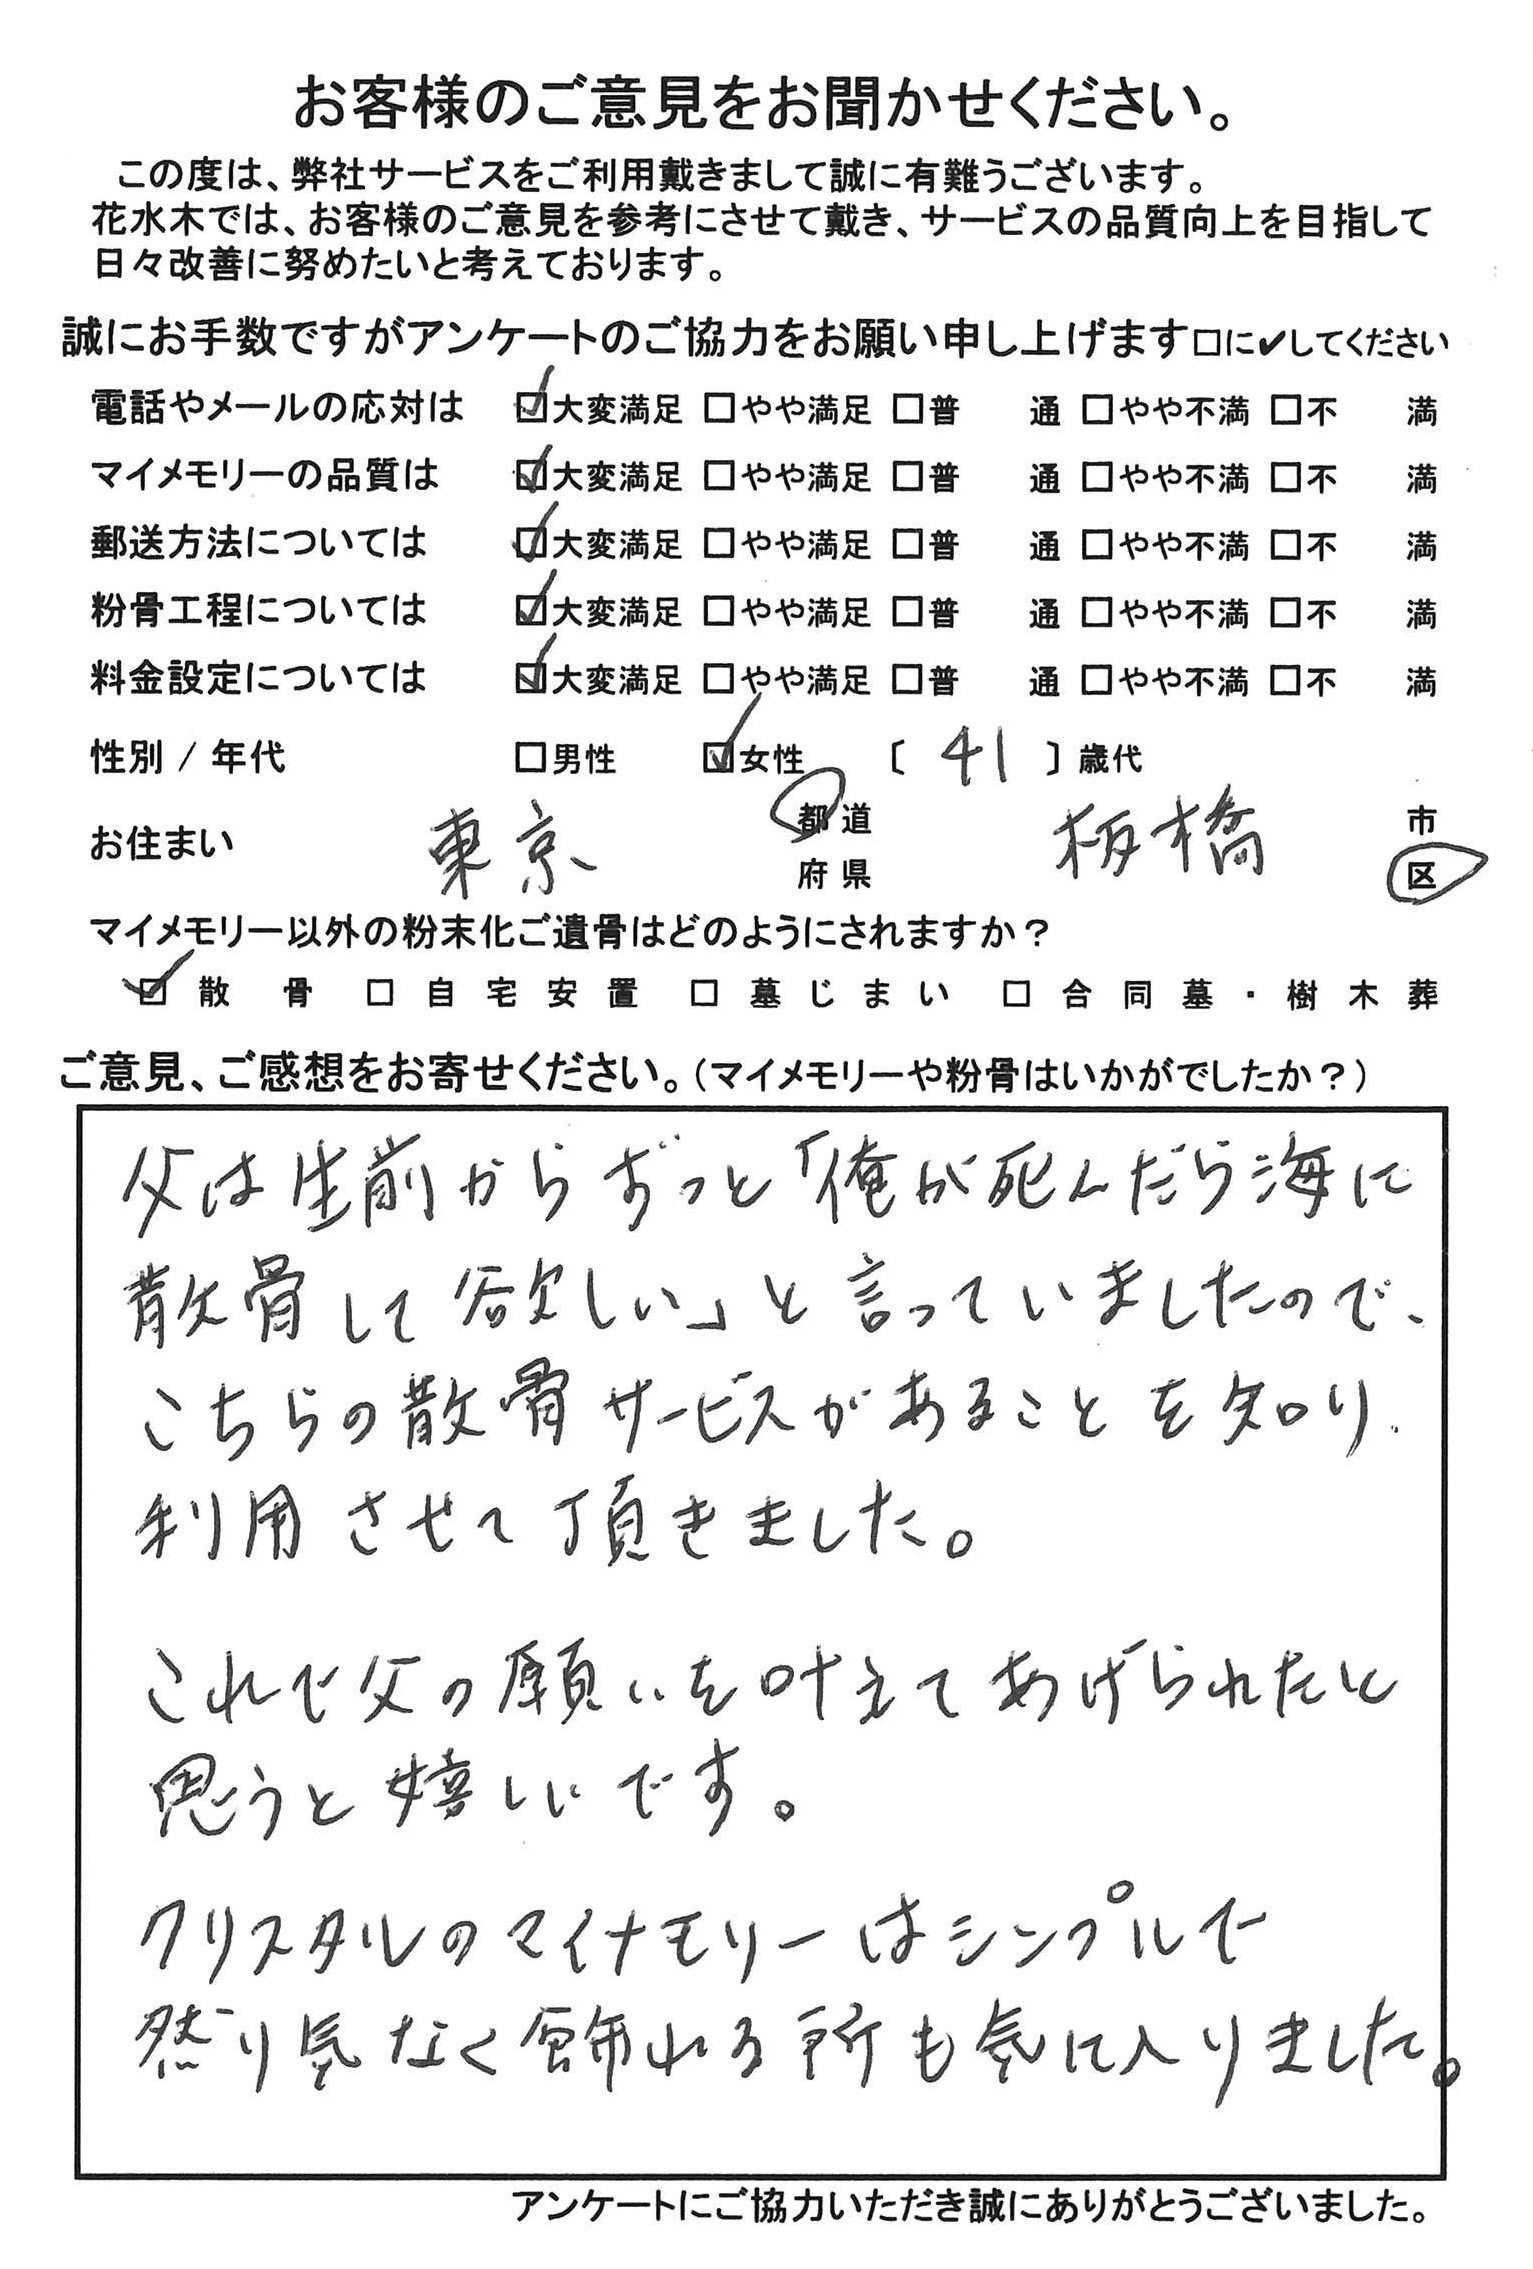 お客様のご意見をお聞かせください。
この度は、弊社サービスをご利用戴きまして誠に有難うございます。
花水木では、お客様のご意見を参考にさせて戴き、サービスの品質向上を目指して
日々改善に努めたいと考えております。
誠にお手数ですがアンケートのご協力をお願い申し上げます□に✔してください
電話やメールの応対は ☑大変満足 □やや満足 □普 通 □やや不満 □不 満
マイメモリーの品質は ☑大変満足 □やや満足 □普 通 □やや不満 □不 満
郵送方法については ☑大変満足 □やや満足 □普 通 □やや不満 □不 満
粉骨工程については ☑大変満足 □やや満足 □普 通 □やや不満 □不 満
料金設定については ☑大変満足 □やや満足 □普 通 □やや不満 □不 満
性別 / 年代 □男性 ☑女性 〔 41 〕歳代
お住まい 東京 都道府県 板橋 市区
マイメモリー以外の粉末化ご遺骨はどのようにされますか？
☑散骨 □自宅安置 □墓じまい □合同墓・樹木葬
ご意見、ご感想をお寄せください。（マイメモリーや粉骨はいかがでしたか？）
父は生前からずっと「俺が死んだら海に
散骨して欲しい」と言っていましたので、
こちらの散骨サービスがあることを知り、
利用させて頂きました。
これで父の願いを叶えてあげられたと
思うと嬉しいです。
クリスタルのマイメモリーはシンプルで
然り気なく飾れる所も気に入りました。
アンケートにご協力いただき誠にありがとうございました。